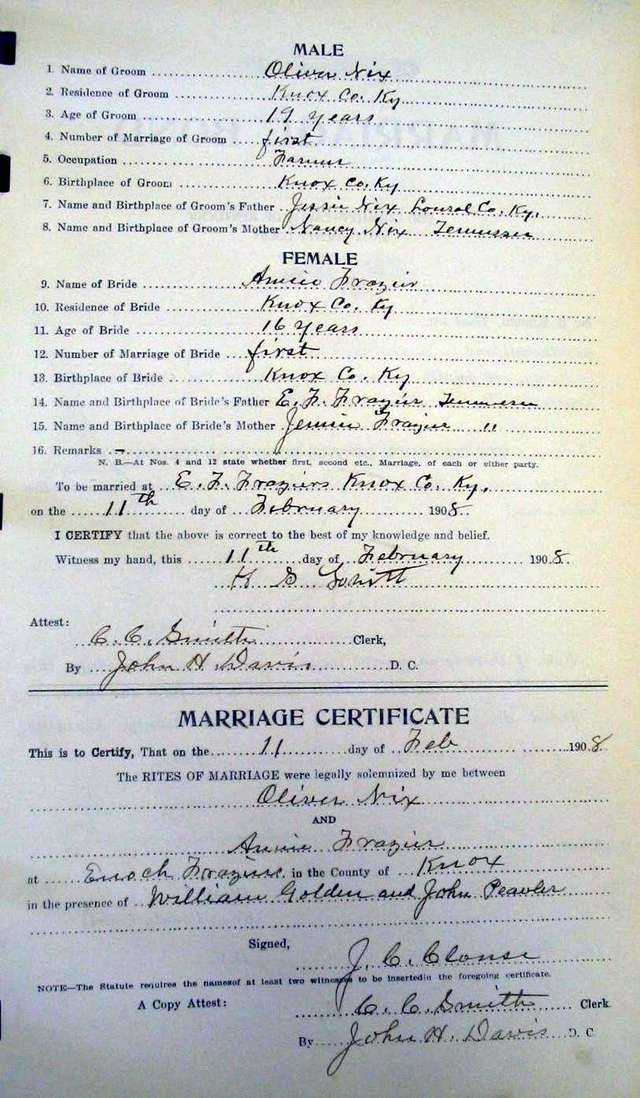 MALE
1. Name of Groom Oliver Nix
2. Residence of Groom Knox Co. Ky
3. Age of Groom 19 years
4. Number of Marriage of Groom first
5. Occupation Farmer
6. Birthplace of Groom Knox Co. Ky
7. Name and Birthplace of Groom's Father Jessie Nix Loural Co. Ky.
8. Name and Birthplace of Groom's Mother Nancy Nix Tennessee
FEMALE
9. Name of Bride Annie Frazier
10. Residence of Bride Knox Co. Ky
11. Age of Bride 16 years
12. Number of Marriage of Bride first
13. Birthplace of Bride Knox Co. Ky
14. Name and Birthplace of Bride's Father E. F. Frazier Tennessee
15. Name and Birthplace of Bride's Mother Jennie Frazier "
16. Remarks -
N. B.—At Nos. 4 and 12 state whether first, second etc., Marriage, of each or either party.
To be married at E. F. Fraziers Knox Co. Ky.
on the 11th day of February 1908.
I CERTIFY that the above is correct to the best of my knowledge and belief.
Witness my hand, this 11th day of February 1908.
Attest:
C. C. Smith Clerk,
By John H. Davis D. C.
MARRIAGE CERTIFICATE
This is to Certify, That on the 11 day of Feb 1908
The RITES OF MARRIAGE were legally solemnized by me between
Oliver Nix
AND
Annie Frazier
at Enoch Fraziers in the County of Knox
in the presence of William Golden and John Peavler
Signed,
J. C. Clouse
NOTE—The Statute requires the namesof at least two witnesses to be insertedin the foregoing certificate.
A Copy Attest: C. C. Smith Clerk
By John H. Davis D. C